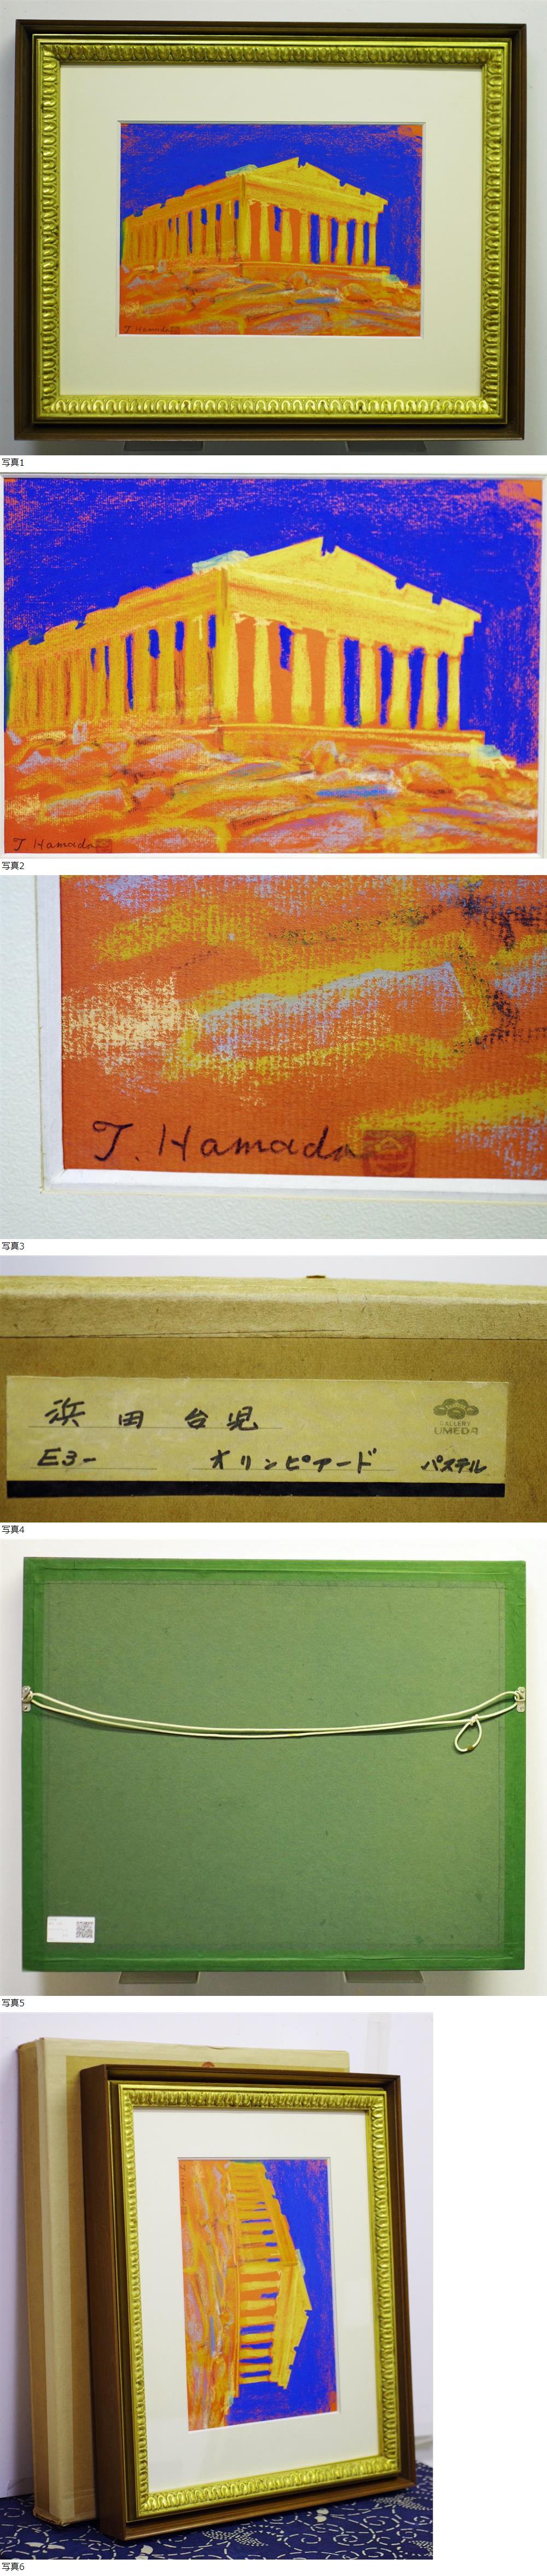 T Hamada
写真1
T Hamada
写真2
T. Hamada
写真3
浜田台児
GALLERY
UMEDA
E3- オリンピアード パステル
写真4
写真5
写真6